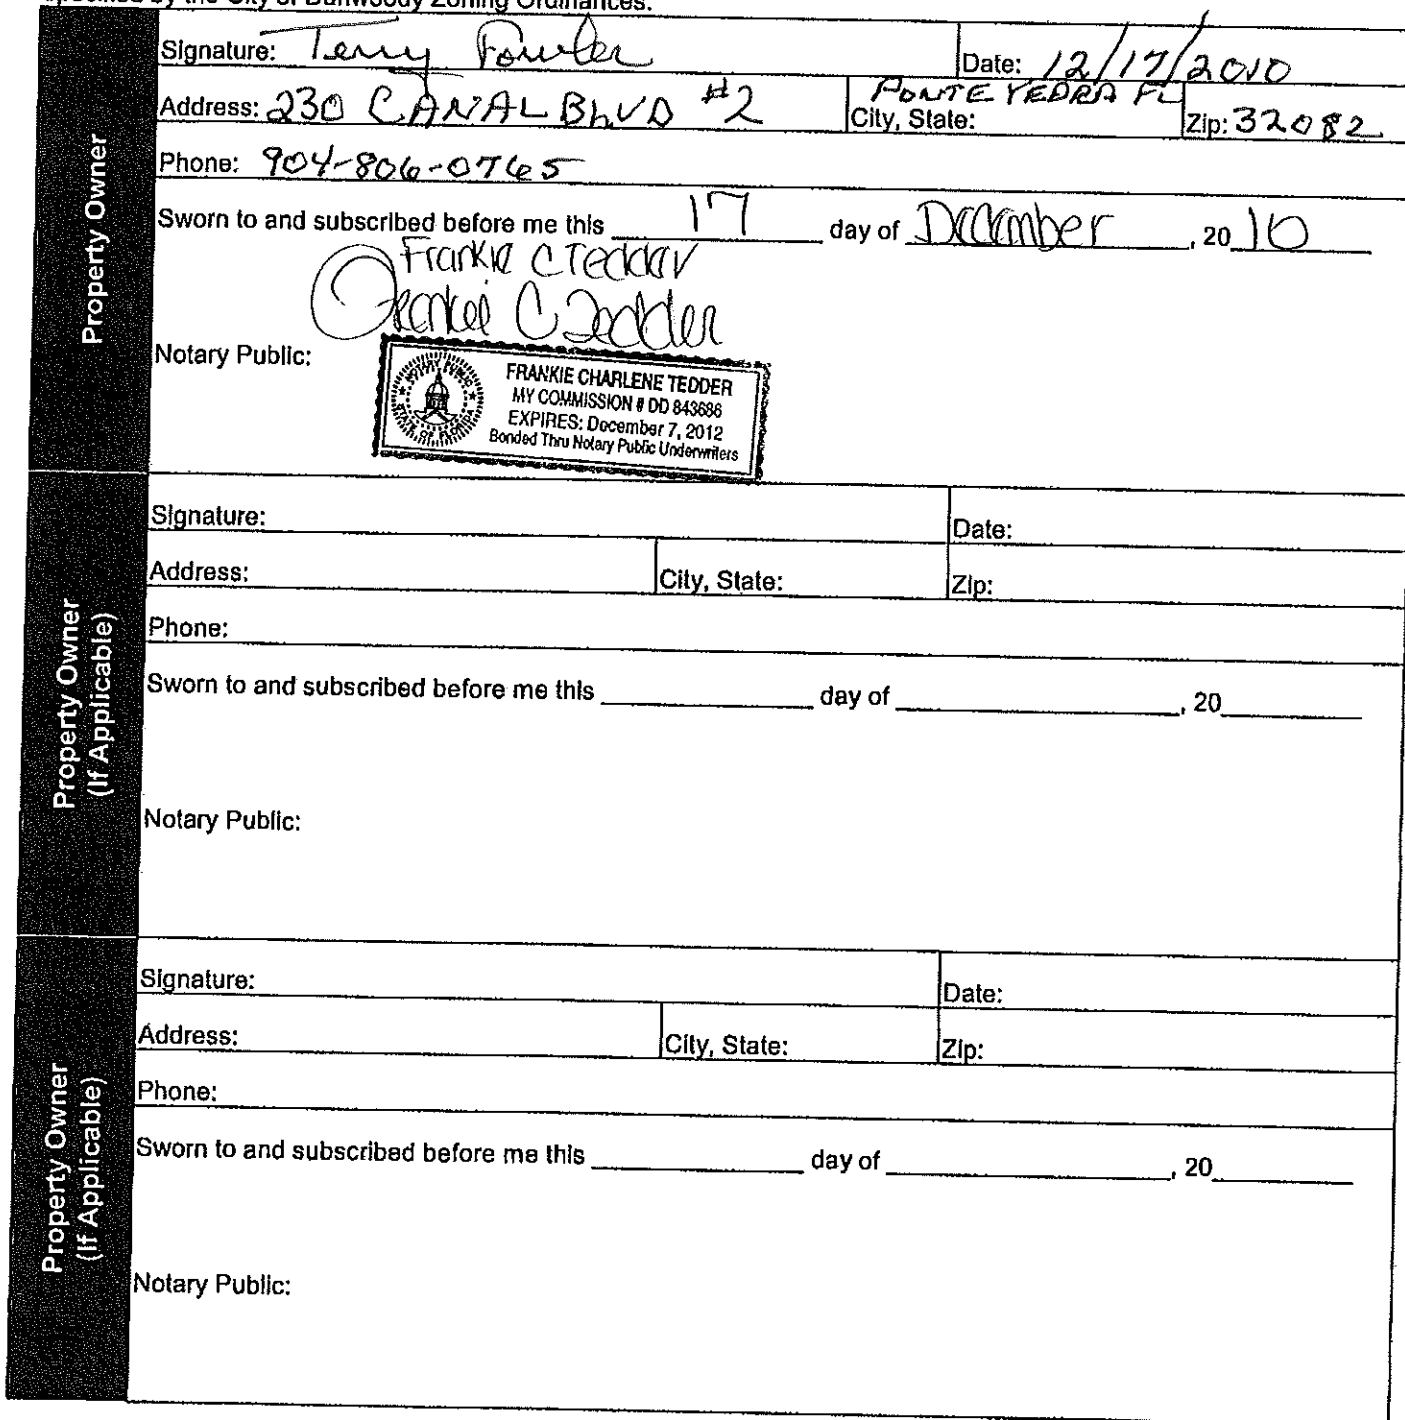 specified by the City of Dunwoody Zoning Ordinances.
Property Owner
Signature: Terry Fowler Date: 12/17/2010
Address: 230 CANAL BLVD #2 City, State: PONTE VEDRA FL Zip: 32082
Phone: 904-806-0765
Sworn to and subscribed before me this 17 day of December, 2010
Frankie C Tedder
Frankie C Tedder
Notary Public:
NOTARY PUBLIC
STATE OF FLORIDA
FRANKIE CHARLENE TEDDER
MY COMMISSION # DD 843686
EXPIRES: December 7, 2012
Bonded Thru Notary Public Underwriters
Property Owner
(If Applicable)
Signature: Date:
Address: City, State: Zip:
Phone:
Sworn to and subscribed before me this ____ day of ____, 20____
Notary Public:
Property Owner
(If Applicable)
Signature: Date:
Address: City, State: Zip:
Phone:
Sworn to and subscribed before me this ____ day of ____, 20____
Notary Public: